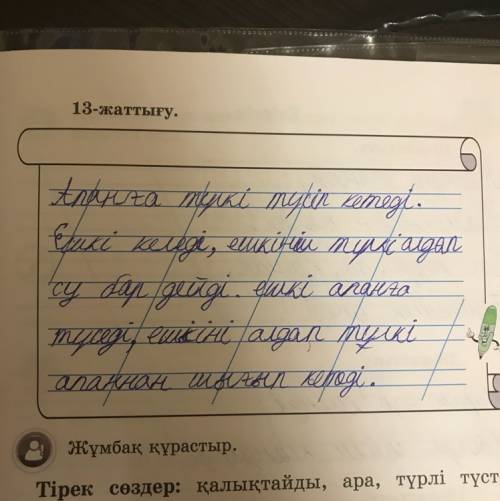 13-жаттығу.
Апанға түркі түсіп кетеді.
Ешкі келеді, ешкінің түркі алдап
су бар дейді. ешкі апанға
түседі, ешкіні алдап түлкі
апаннан шығып кетеді.
Жұмбақ құрастыр.
Тірек сөздер: қалықтайды, ара, түрлі түст